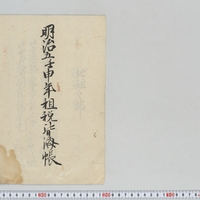 明治五壬申年租税皆済帳